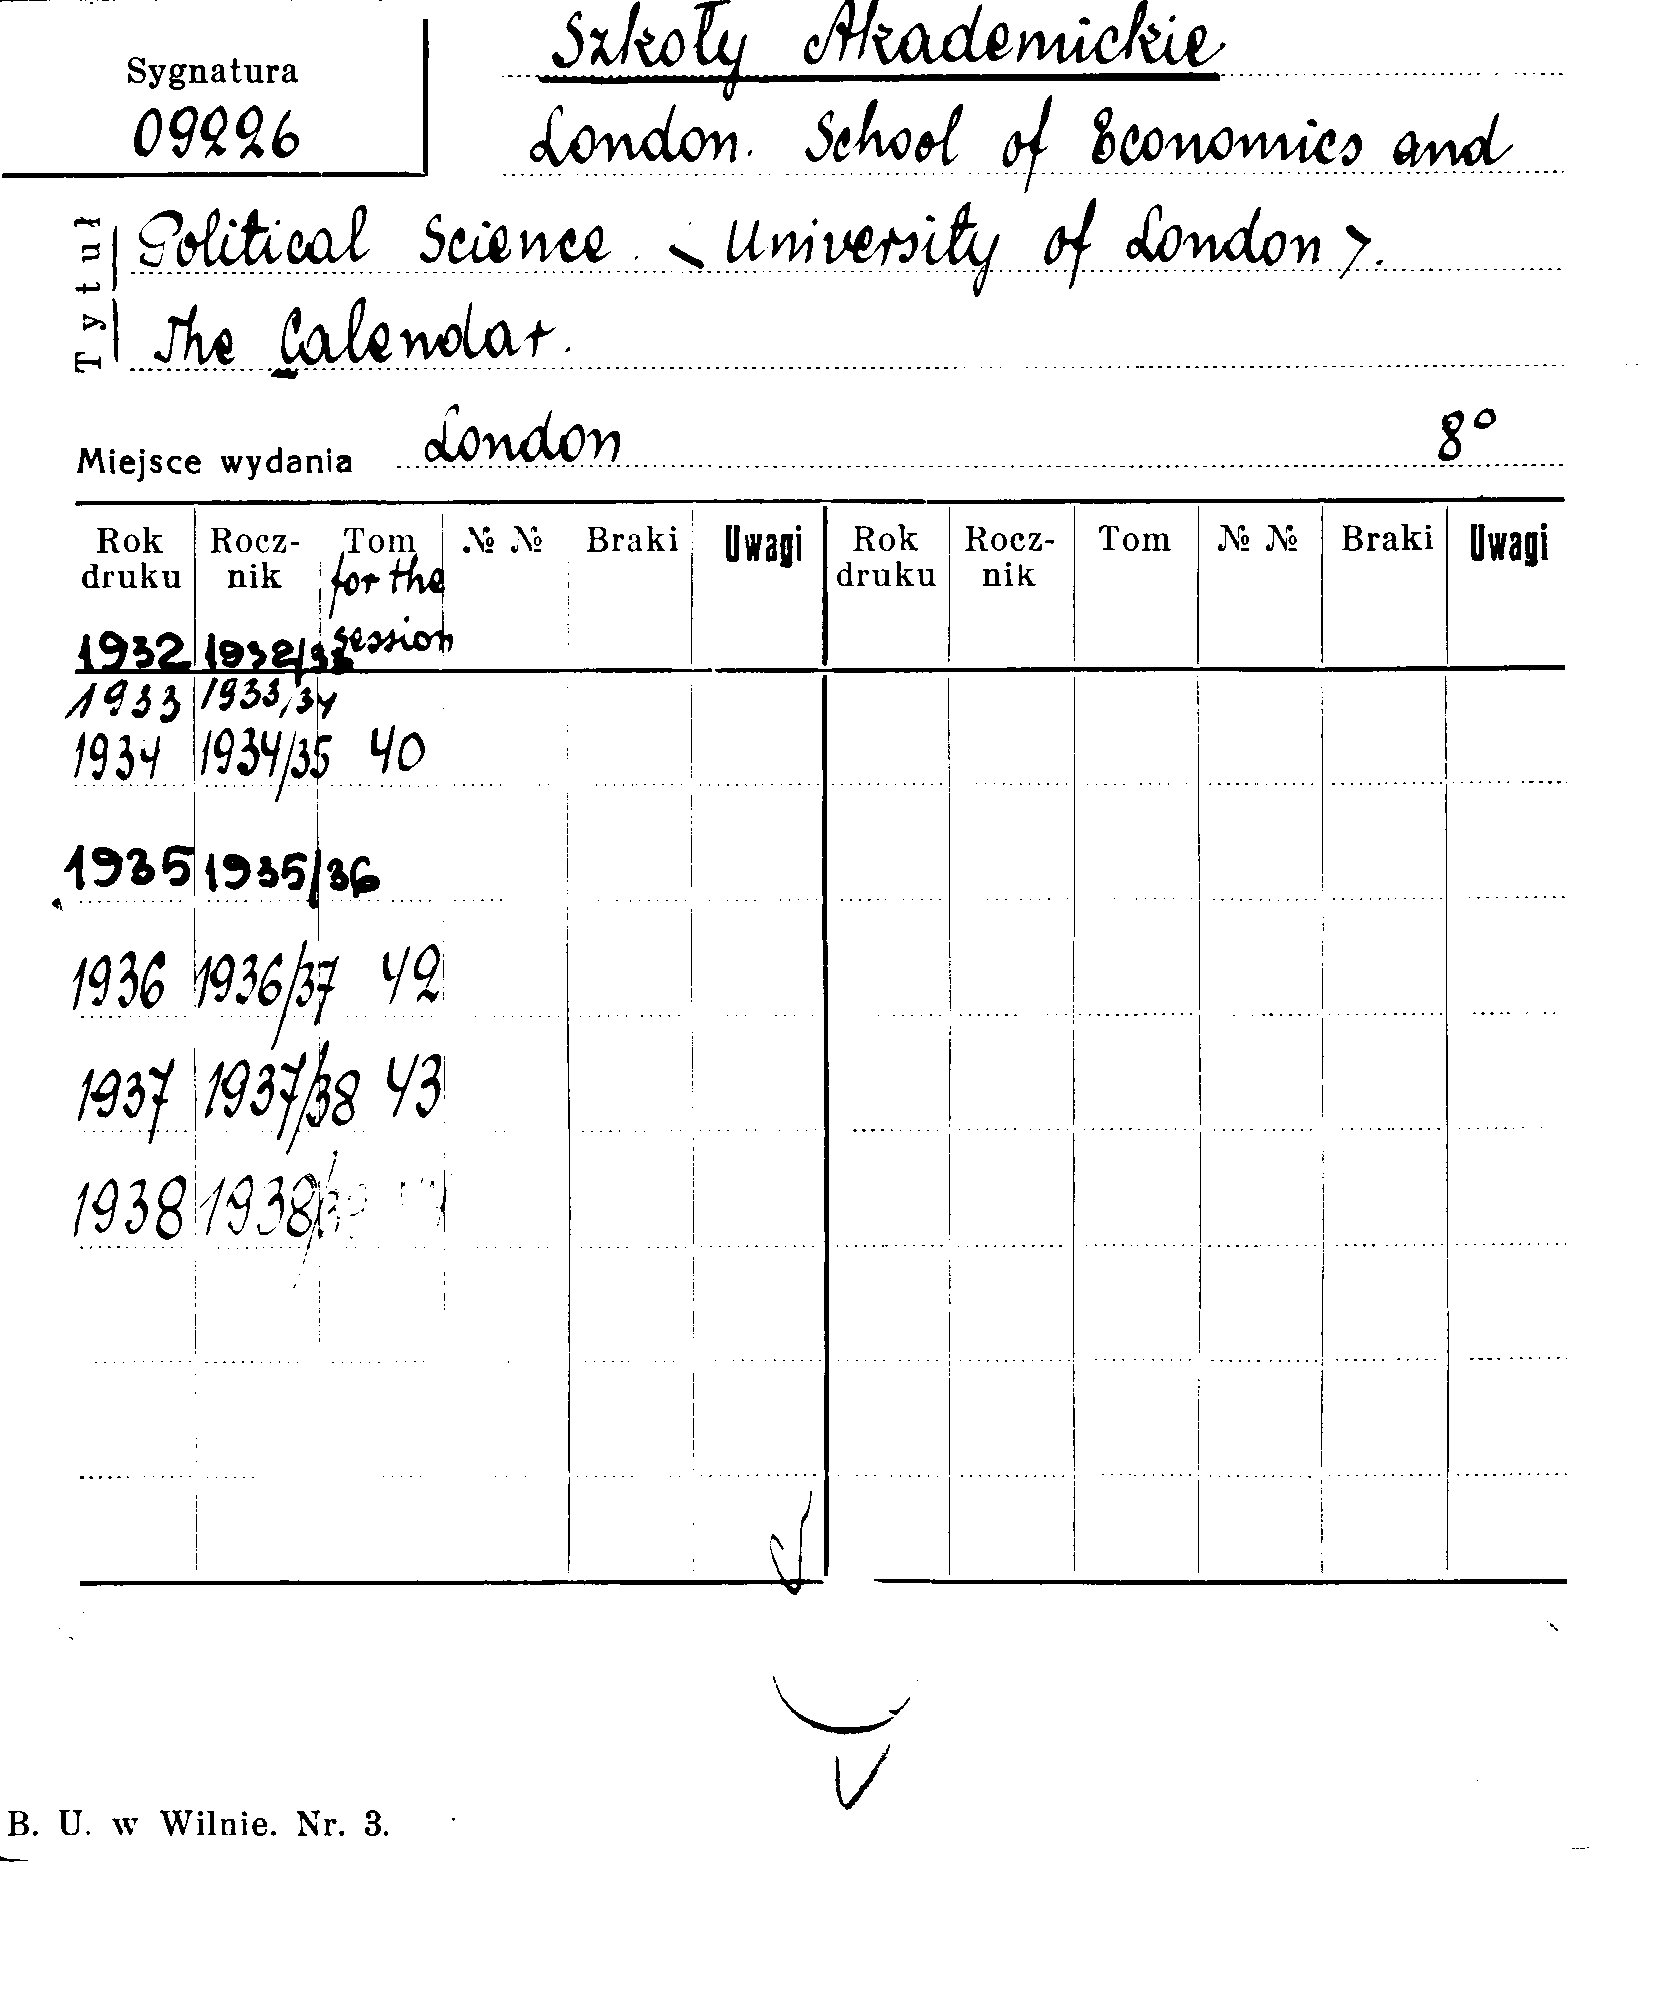 Szkoły Akademickie
Sygnatura
09226
London. School of Economics and
Tytuł
Political Science. < University of London >.
The Calendar.
Miejsce wydania London 8°
Rok druku Rocz-nik Tom №№ Braki Uwagi Rok druku Rocz-nik Tom №№ Braki Uwagi
for the
session
1932 1932/33
1933 1933/34
1934 1934/35 40
1935 1935/36
1936 1936/37 42
1937 1937/38 43
1938 1938/39
B. U. w Wilnie. Nr. 3.